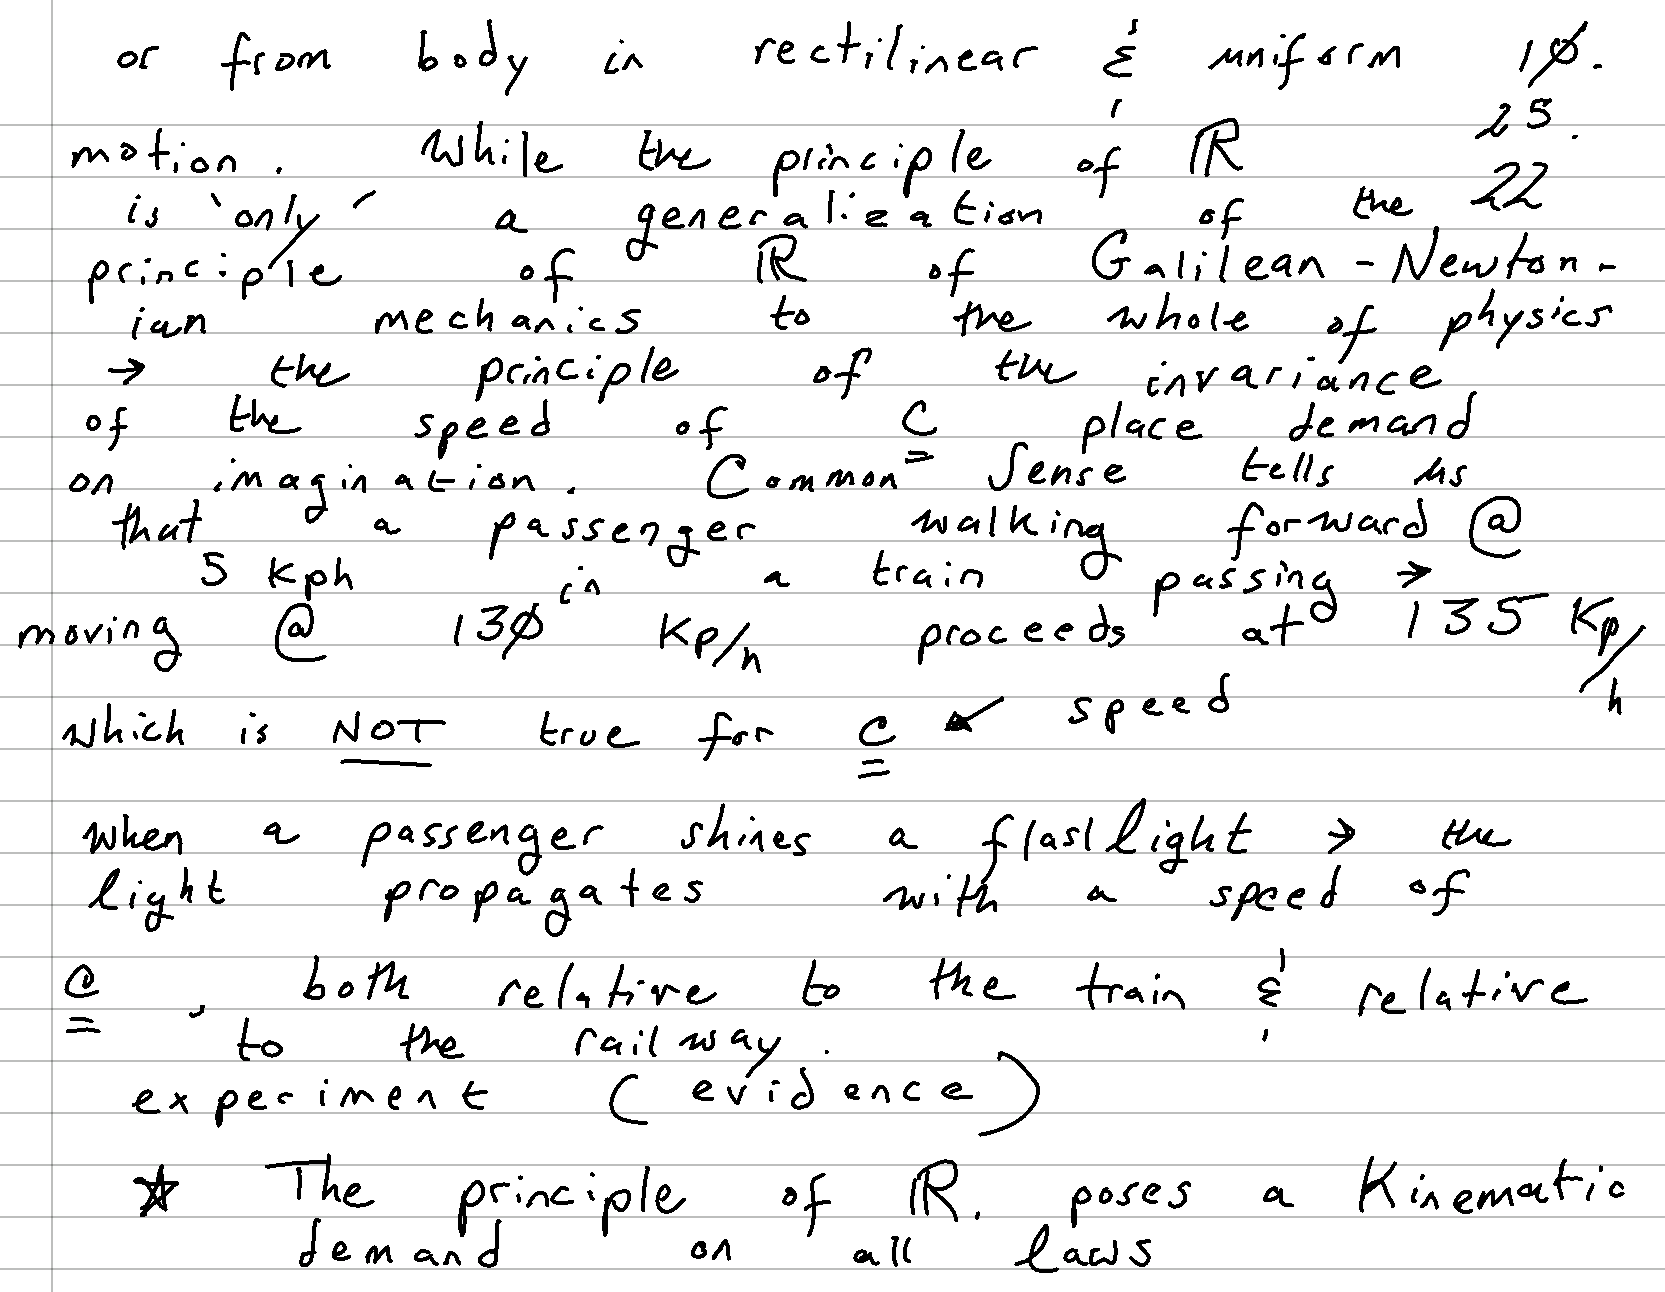 or from body in rectilinear & uniform 1Ø.
25.
motion. While the principle of ℝ
22
is 'only' a generalization of the
principle of ℝ of Galilean-Newton-
ian mechanics to the whole of physics
→ the principle of the invariance
of the speed of C place demand
on imagination. Common Sense tells us
that a passenger walking forward @
5 Kph in a train passing →
moving @ 13Ø Kp/h proceeds at 135 Kp/h
which is NOT true for C ↙ speed
When a passenger shines a flashlight → the
light propagates with a speed of
C, both relative to the train & relative
to the railway.
experiment (evidence)
☆ The principle of ℝ. poses a Kinematic
demand on all laws